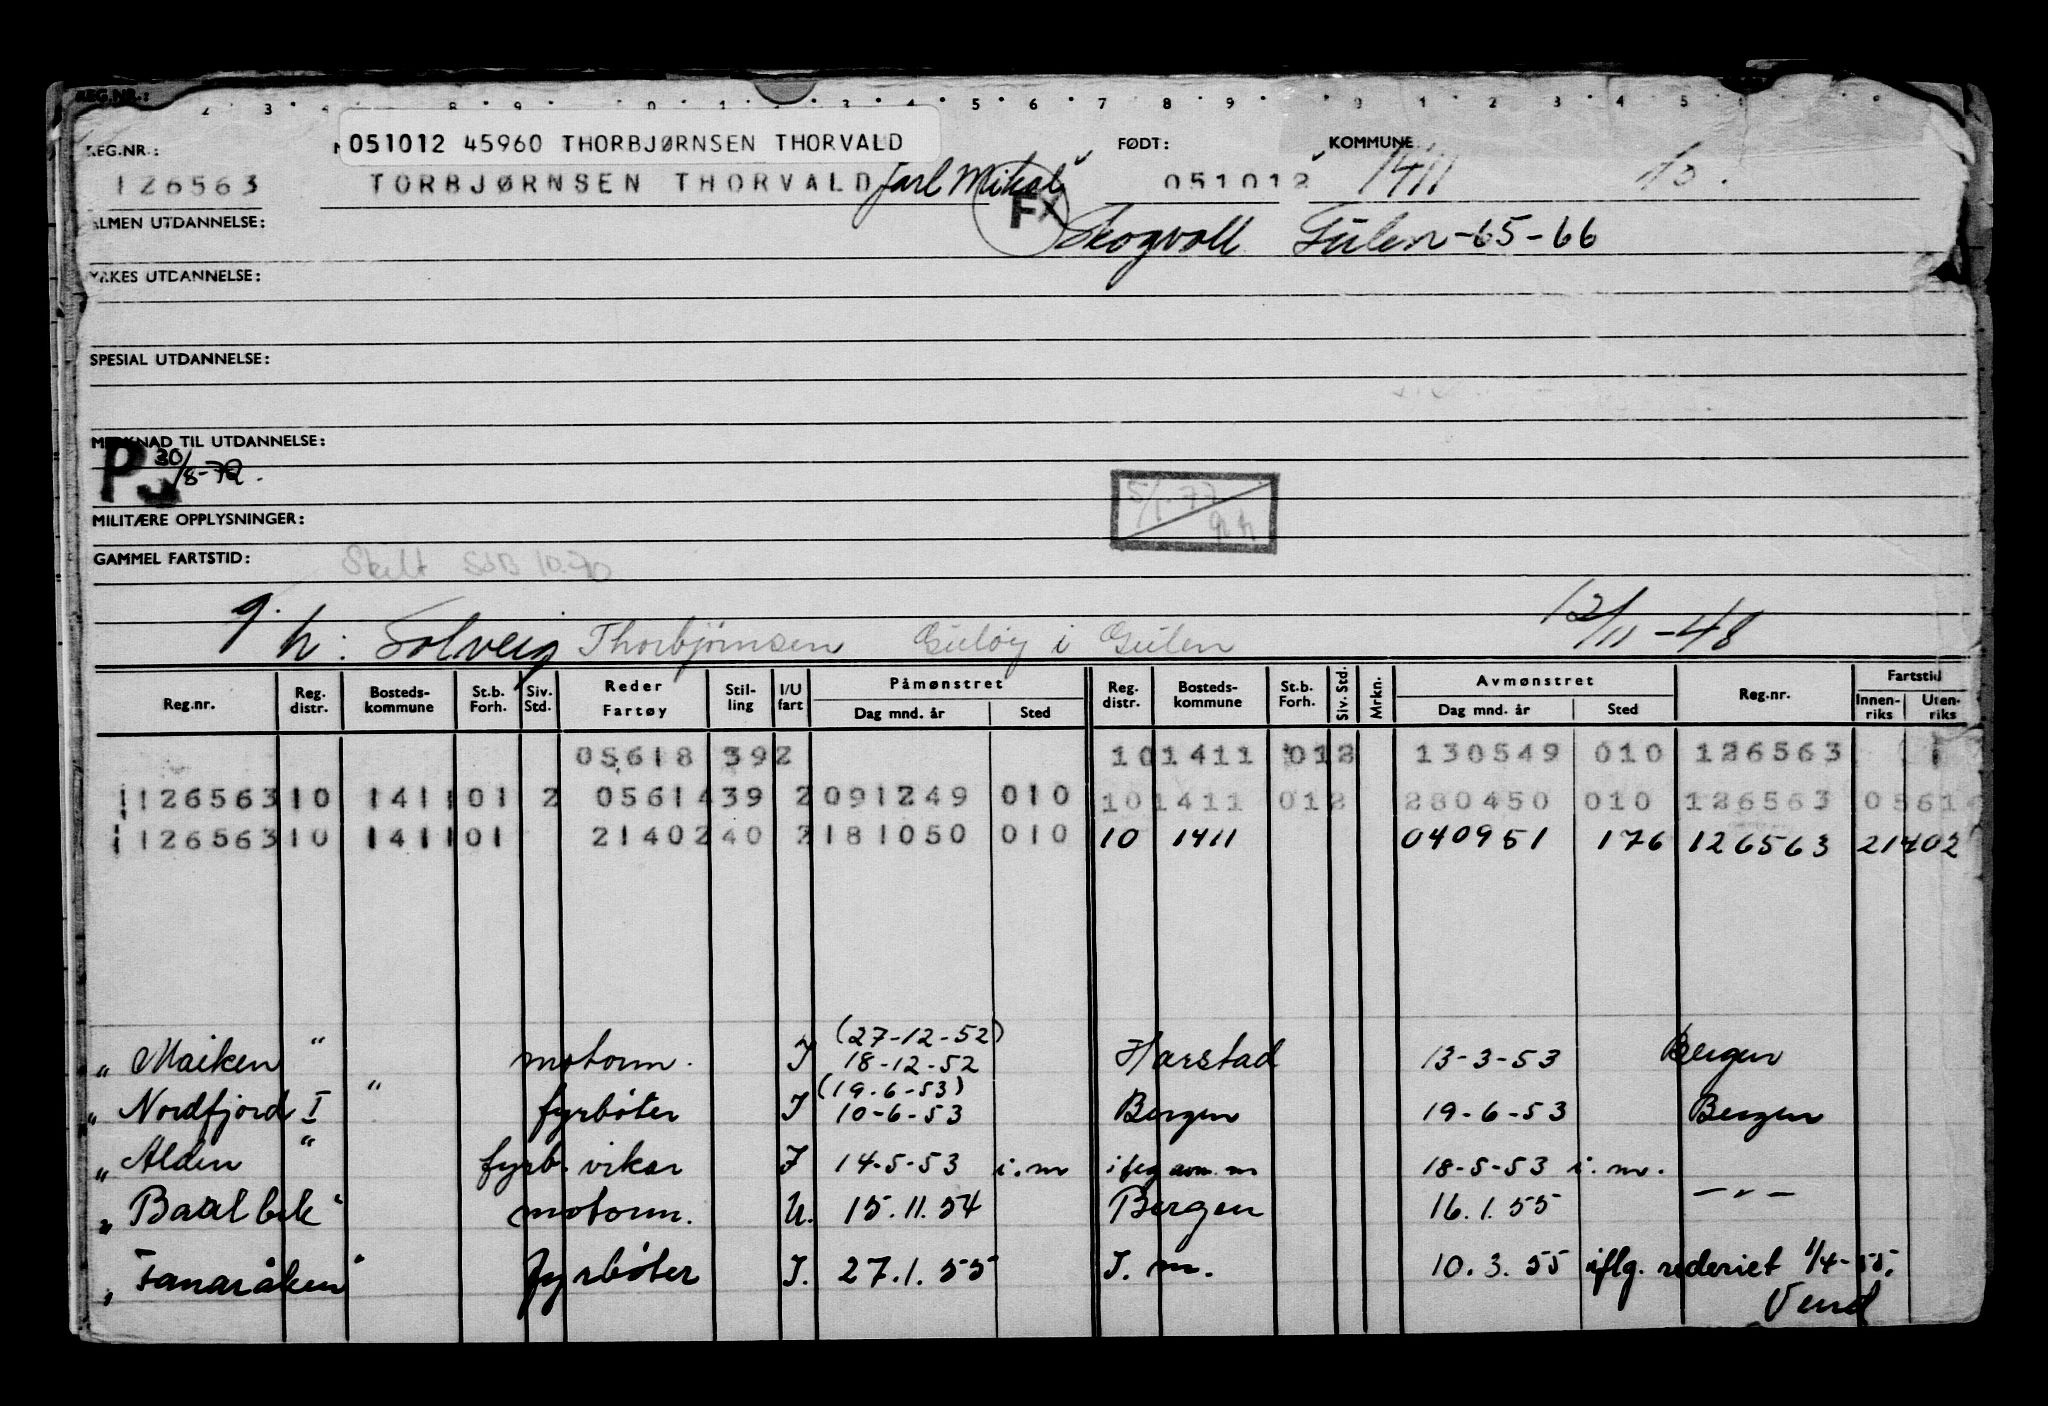 REG.NR.:
051012 45960 THORBJØRNSEN THORVALD
REG.NR.: FØDT: KOMMUNE
126563 TORBJØRNSEN THORVALD Jarl Mikal 051012 1411 10.
FX
ALMEN UTDANNELSE: Skogvoll Gulen-65-66
YRKES UTDANNELSE:
SPESIAL UTDANNELSE:
MERKNAD TIL UTDANNELSE:
P 30/8-72.
5/1-77
MILITÆRE OPPLYSNINGER:
GAMMEL FARTSTID: 10.70
g. h: Solveig Thorbjørnsen Guløy i Gulen 12/11-48
Reg.nr. Reg. distr. Bosteds-kommune St.b. Forh. Siv. Std. Reder Fartøy Stil-ling I/U fart Påmønstret Dag mnd. år Sted Reg. distr. Bosteds-kommune St.b. Forh. Siv. Std. Mrkn. Avmønstret Dag mnd. år Sted Reg.nr. Fartstid Innen-riks Uten-riks
05618 392 10 1411 012 130549 010 126563
126563 10 1411 01 2 05614 39 2 091249 010 10 1411 012 280450 010 126563 0561
126563 10 1411 01 21402 40 2 181050 010 10 1411 040951 176 126563 21402
(27-12-52)
" Maiken " motorm. I 18-12-52 Harstad 13-3-53 Bergen
(19-6-53)
" Nordfjord I " fyrbøter I 10-6-53 Bergen 19-6-53 Bergen
" Alden " fyrb. vikar I 14-5-53 i.m 18-5-53 i.m.
" Baalbek " motorm. U. 15.11.54 Bergen 16.1.55 — " —
" Fanaråken " fyrbøter I. 27.1.55 I. m. 10.3.55 iflg. rederiet 1/4-55.
Vend